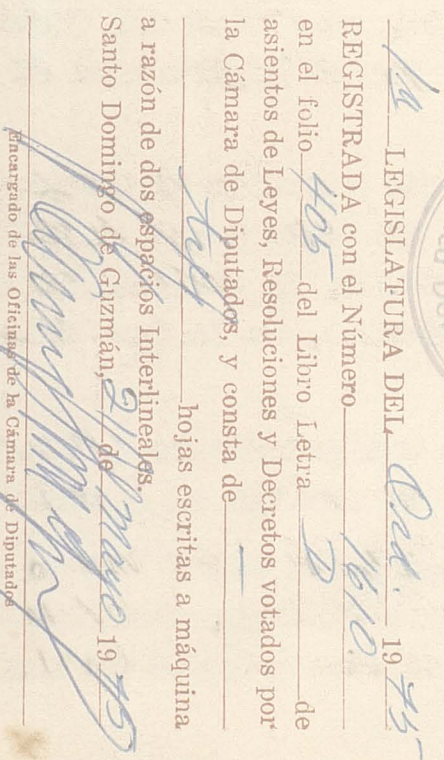 1a LEGISLATURA DEL Ord. 1975
REGISTRADA con el Número 1610.
en el folio 405 del Libro Letra D de
asientos de Leyes, Resoluciones y Decretos votados por
la Cámara de Diputados, y consta de
hojas escritas a máquina
a razón de dos espacios Interlineales.
Santo Domingo de Guzmán, 21 de mayo 1975
Encargado de las Oficinas de la Cámara de Diputados